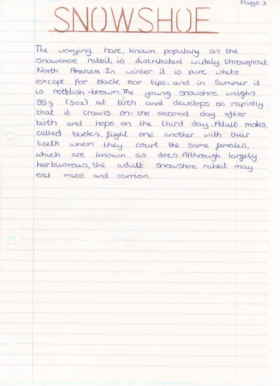 Page 3
SNOWSHOE
The varying hare, known popularly as the
snowshoe rabbit, is distributed widely throughout
North America. In winter it is pure white
except for black ear tips, and in Summer it
is reddish-brown. The young snowshoe weighs
85g (3oz) at birth and develops so rapidly
that it crawls on the second day after
birth and hops on the third day. Adult males,
called bucks, fight one another with their
teeth when they court the same females,
which are known as does. Although largely
herbivorous, the adult snowshoe rabbit may
eat mice and carrion.